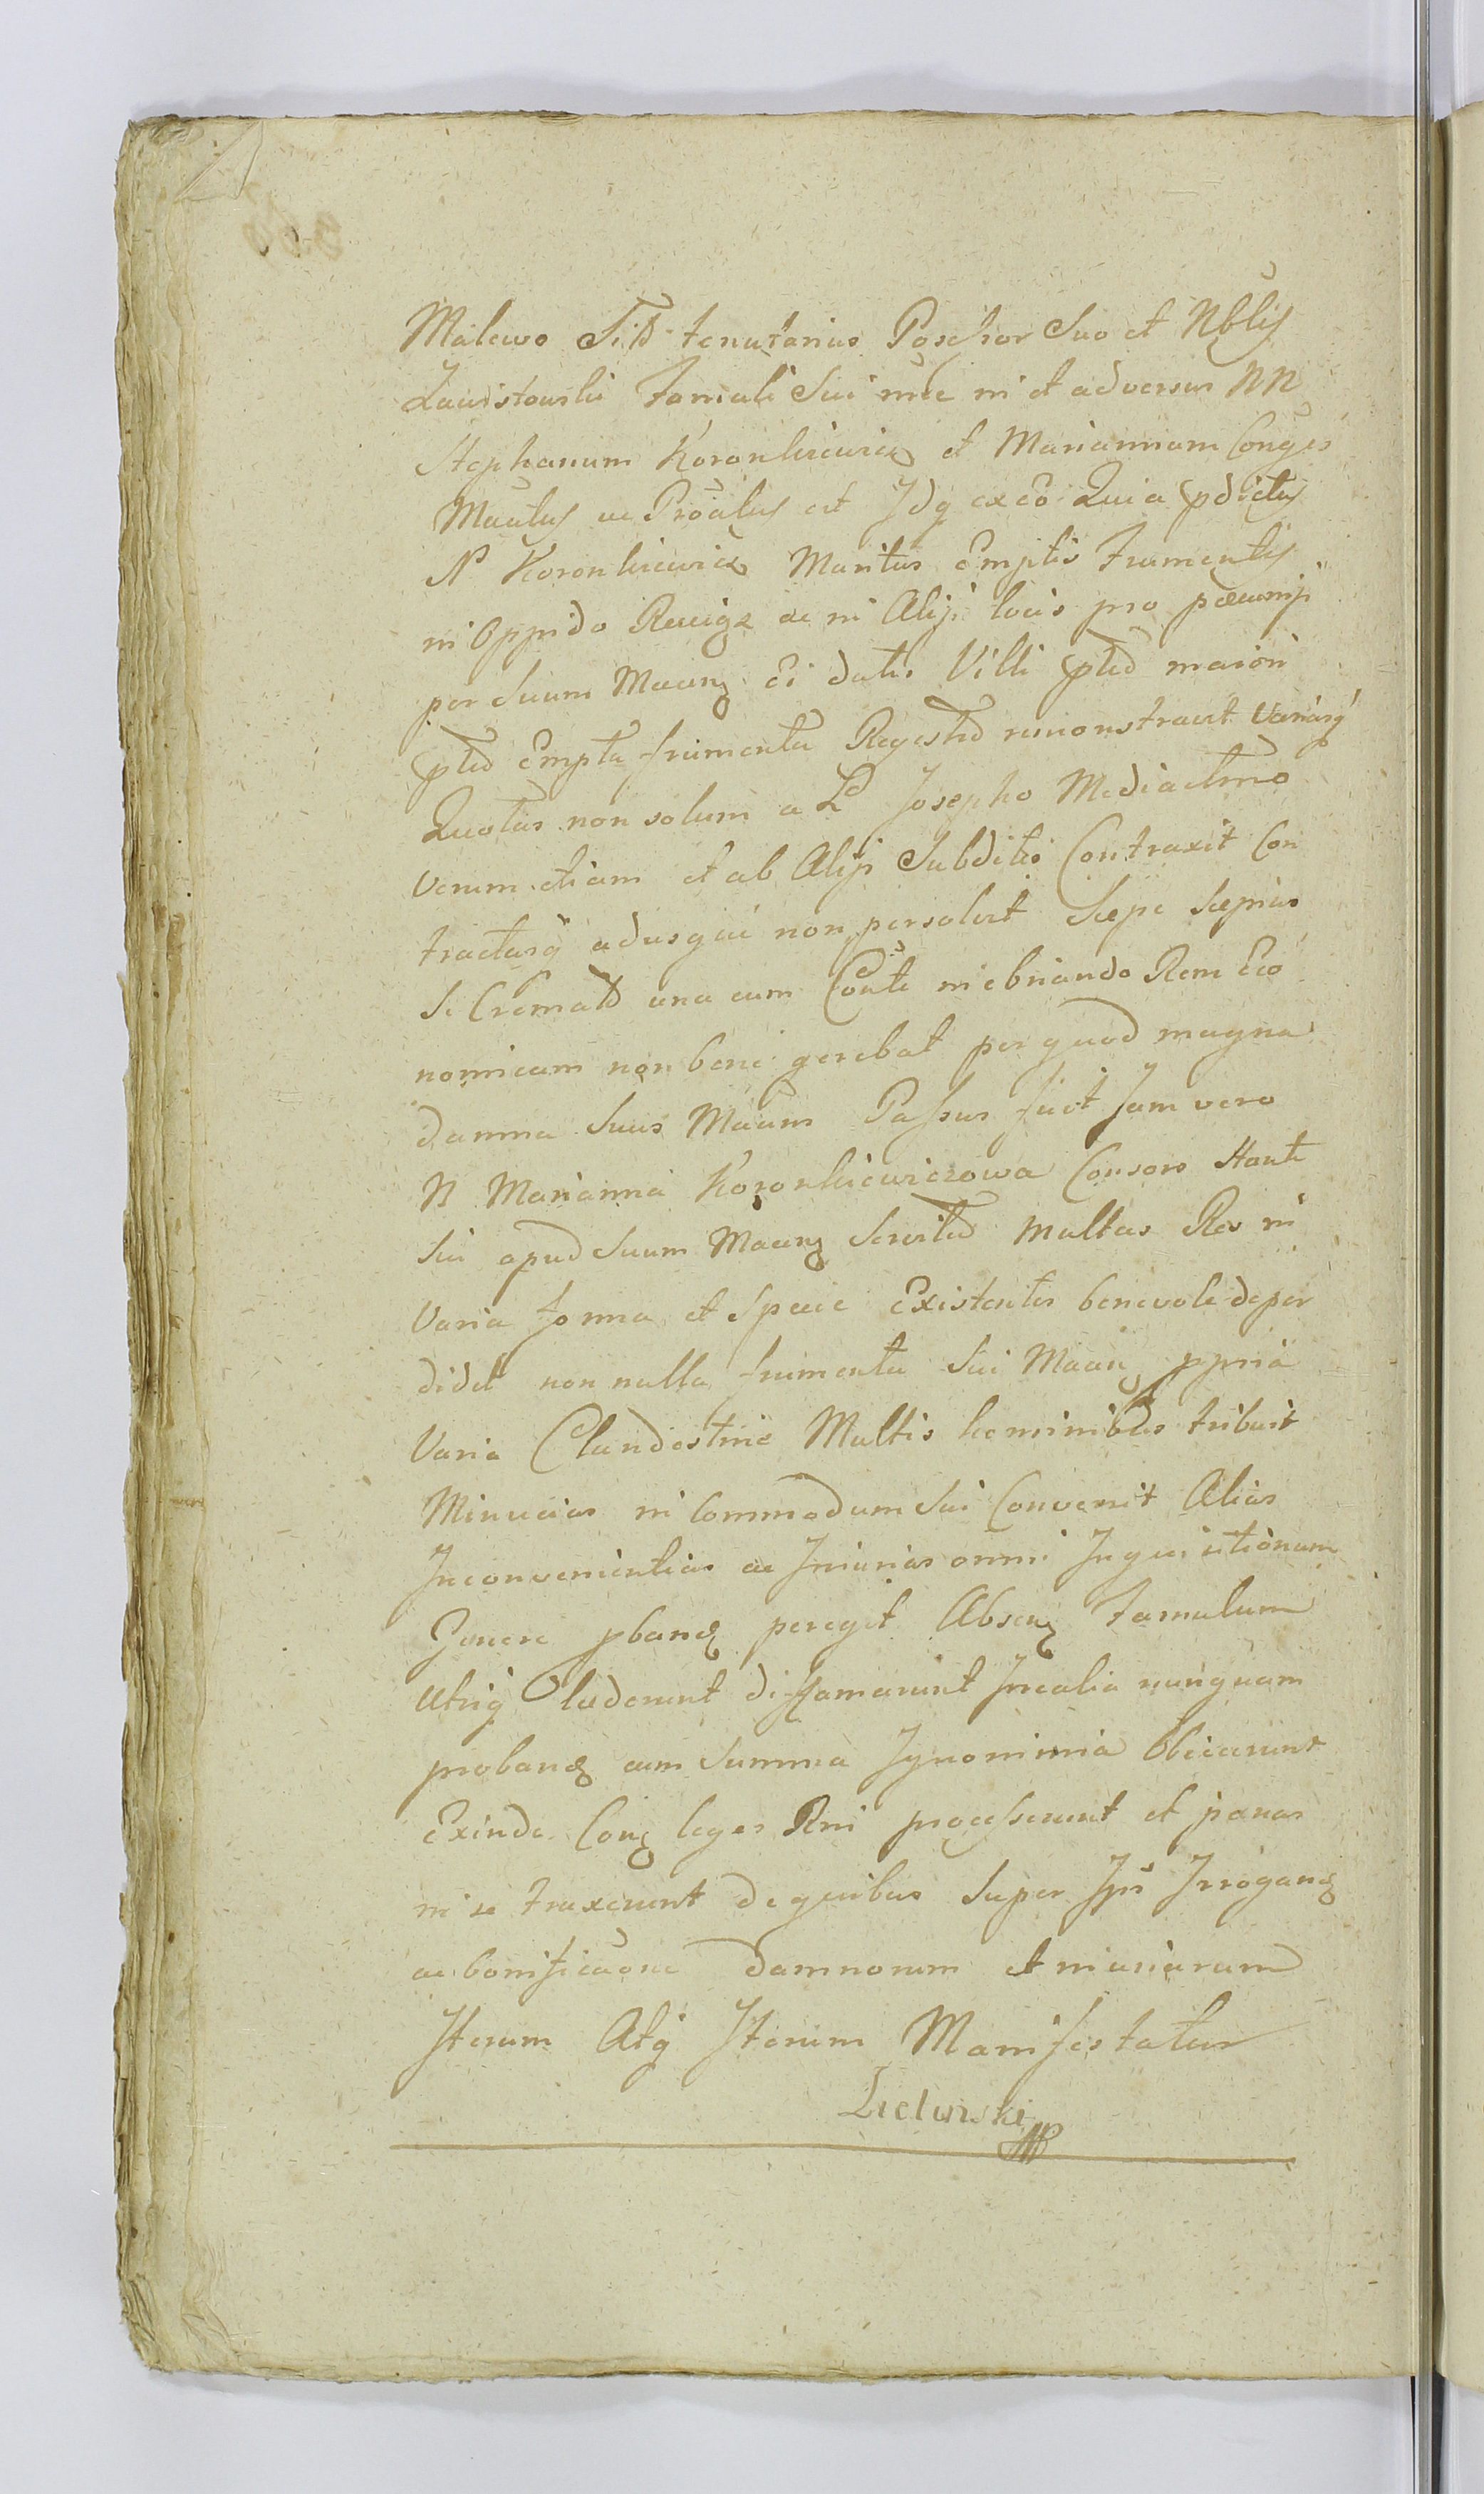 Malewo tenutarius Possessor Suo et Nblis
Zawistowski Famuli Sui nne in et adversus NN
Stephanum Koronkiewicz et Mariannam Conges
ac est Idq ex eo Quia pdictus
N Koronkiewicz Maritus Emptis Frumentis
in Oppido ac in Alijs locis pro pecunijs
per Suum Maeum Ei datis Villi maiori
Empta frumenta Regestro remonstravit variasq
Quotas non solum a Josepho
verum etiam et ab Alijs Subditis Contraxit Con
tractasq adusque non persolvit Saepe Saepius
Se Cremato una cum Conte inebriando Rem Eco
nomicam non bene gerebat per quod magna
damna Suus Maeum Passus fuit Jam vero
N Marianna Koronkiewiczowa Consors Stante
Sui apud Suum Maeum Servitio multas Res in
Varia forma et Specie Existentes benevole deper
didit non nulla frumenta Sui Maeum ppria
Varia Clandestine Multis hominibus tribuit
Minucias in Commodum Sui Convertit Alias
Inconvenientias ac Iniurias omni Inquisitionum
Genere pband peregit Absen Famulum
Utriq laederunt diffamarunt Irrealia nunquam
proband cum Summa Ignominia Obiecerunt
Exinde Con leges Rni processerunt et paenas
in se traxerunt de quibus Super Ipsis Irrogand
ac bonificaone damnorum et iniuriarum
Iterum Atq Iterum Manifestatur
Zielinski